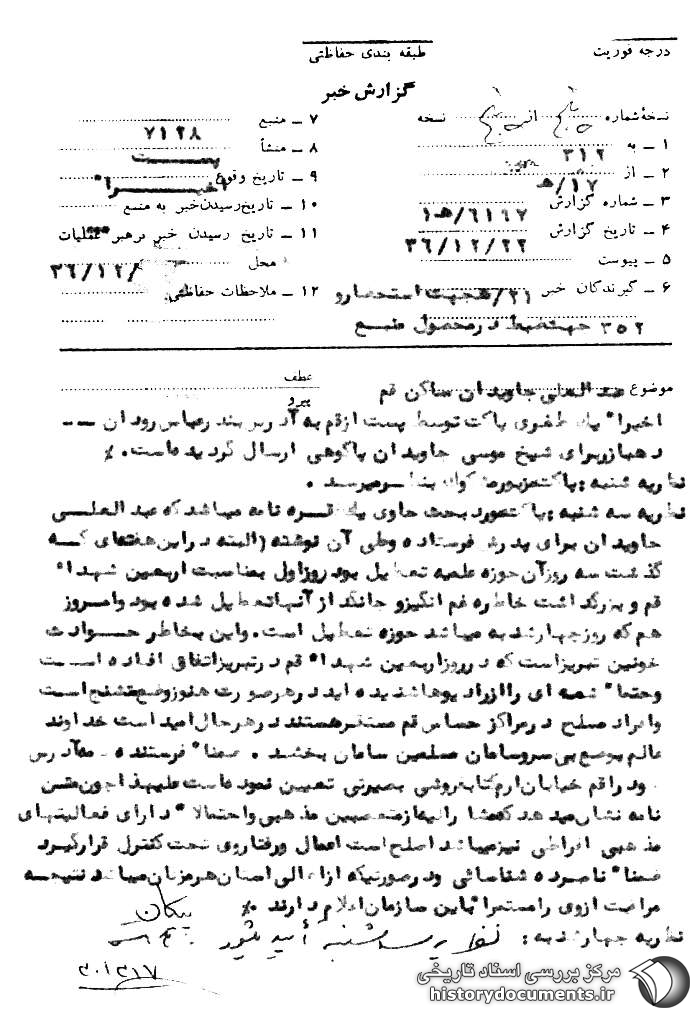 درجه فوریت
طبقه بندی حفاظتی
گزارش خبر
نسخهٔ شماره از نسخه
۱ – به ۳۱۲
۲ – از ۱۷/ه
۳ – شماره گزارش
۴ – تاریخ گزارش ۳۶/۱۲/۲۲
۵ – پیوست
۶ – گیرندگان خبر ۲۱/
۳۵۲ جهت ضبط در محصول منبع
۷ – منبع ۷۱۲۸
۸ – منشأ پست
۹ – تاریخ وقوع اخیراً
۱۰ – تاریخ رسیدن خبر به منبع
۱۱ – تاریخ رسیدن خبر برهبر عملیات
محل ۳۶/۱۲/
۱۲ – ملاحظات حفاظتی
موضوع عبدالعلی جاویدان ساکن قم
عطف
پیرو
اخیراً یک طغری پاکت توسط پست از قم به آدرس بندرعباس رودان ---
دهبارز برای شیخ موسی جاویدان پاکوهی ارسال گردیده است. ٪
نظریه شنبه : پاکت مزبور مشکوک بنظر میرسد .
نظریه سه شنبه : پاکت مورد بحث حاوی یک فقره نامه میباشد که عبدالعلی
جاویدان برای پدرش فرستاده وطی آن نوشته (البته در این هفته‌ای که
گذشت سه روز آن حوزه علمیه تعطیل بود روز اول بمناسبت اربعین شهداء
قم و بزرگداشت خاطره غم انگیز و جانگداز آنها تعطیل شده بود و امروز
هم که روز چهارشنبه میباشد حوزه تعطیل است. واین بخاطر حوادث
خونین تبریز است که در روز اربعین شهداء قم در تبریز اتفاق افتاده است
وحتماً شمه ای را از رادیوها شنیده اید در هر صورت هنوز وضع متشنج است
وافراد مسلح در مراکز حساس قم مستقر هستند در هر حال امید است خداوند
عالم بوضع بی سروسامان مسلمین سامان بخشد . ضمناً فرستنده آدرس
خود را قم خیابان ارم کتابفروشی بصیرتی تعیین نموده است علیهذا چون متن
نامه نشان میدهد که منشاء از متعصبین مذهبی و احتمالاً دارای فعالیتهای
مذهبی افراطی نیز میباشد اصلح است اعمال ورفتار وی تحت کنترل قرار گیرد
ضمناً نامبرده شناسائی و در صورتیکه از اهالی استان هرمزگان میباشد نتیجه
مراقبت از وی را مستمراً باین سازمان اعلام دارند ٪
پیکان
نظریه چهارشنبه : نظریه سه شنبه تأیید میشود
۳۰۱۳۱۷
مرکز بررسی اسناد تاریخی
historydocuments.ir